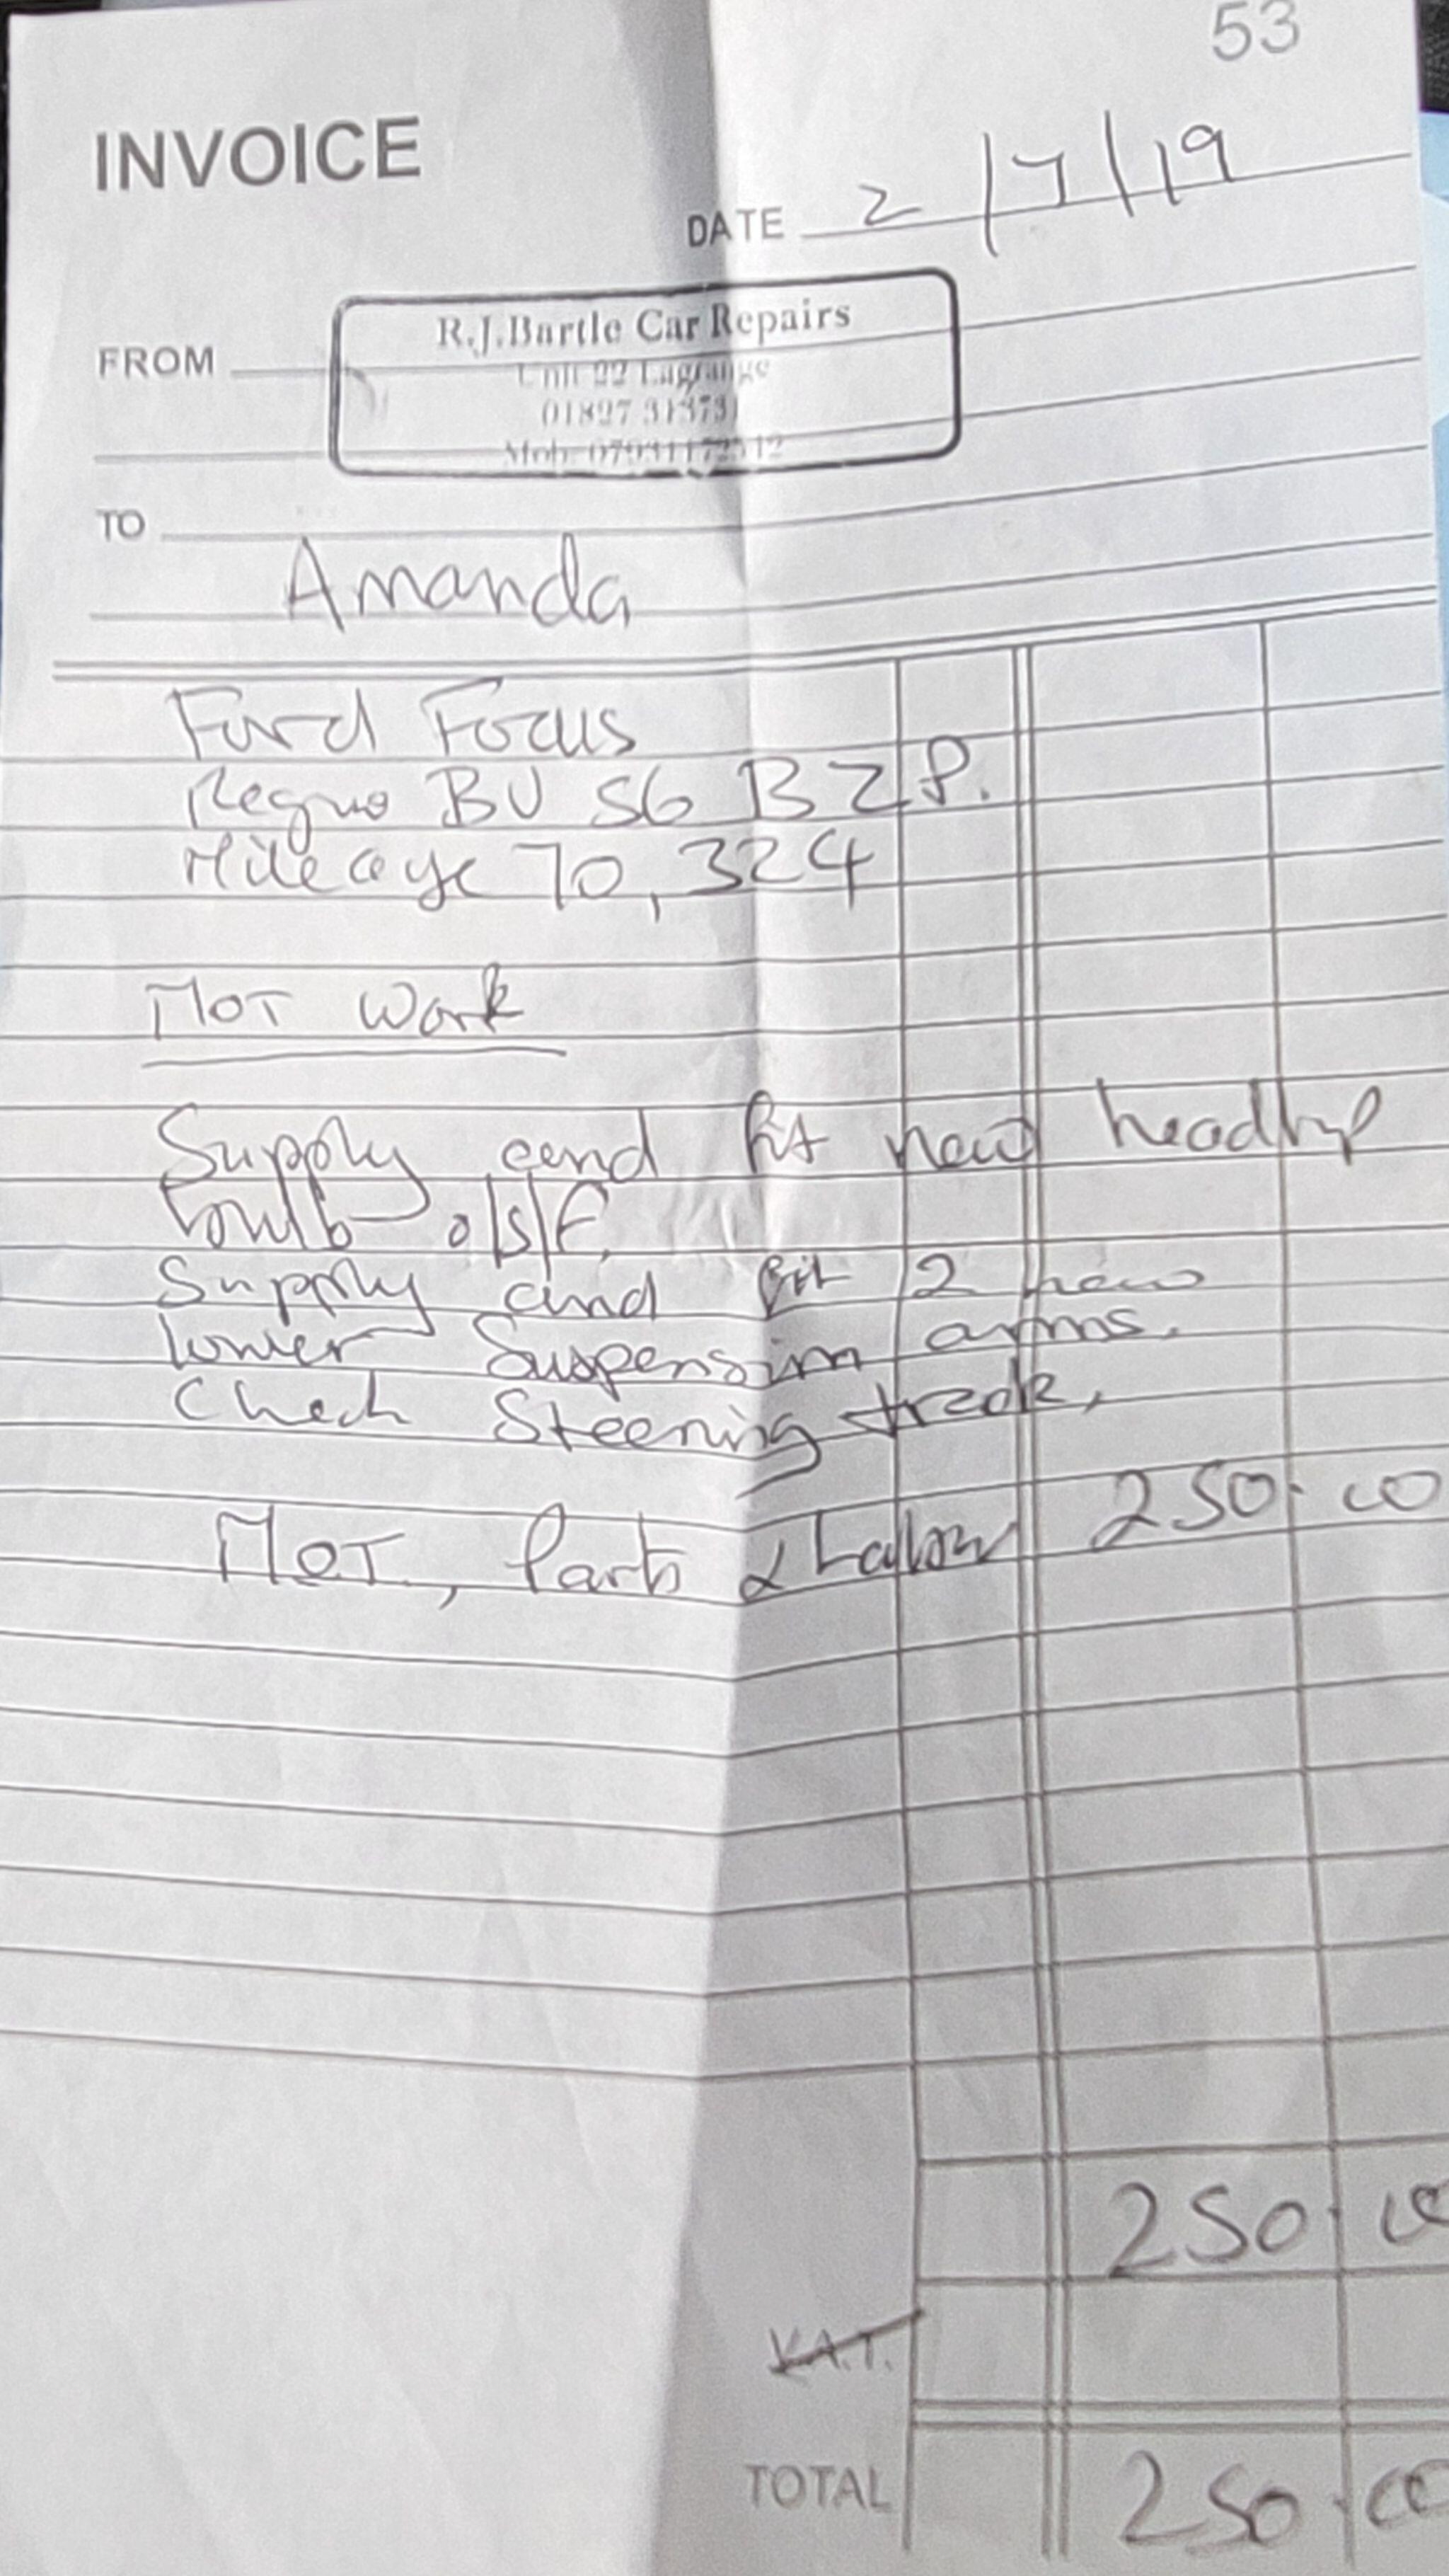 53
INVOICE
DATE 2/7/19
R.J.Bartle Car Repairs
FROM
Unit 22 Lagrange
01827 31373
Mob.
TO
Amanda
Ford Focus
Regno BU 56 BZP.
Mileage 70,324
MOT Work
Supply and fit new headlmp
bulb o/s/f.
Supply and fit 2 new
lower Suspension arms.
Check Steering track,
MOT, Parts & Labour 250.00
250.00
V.A.T.
TOTAL 250.00